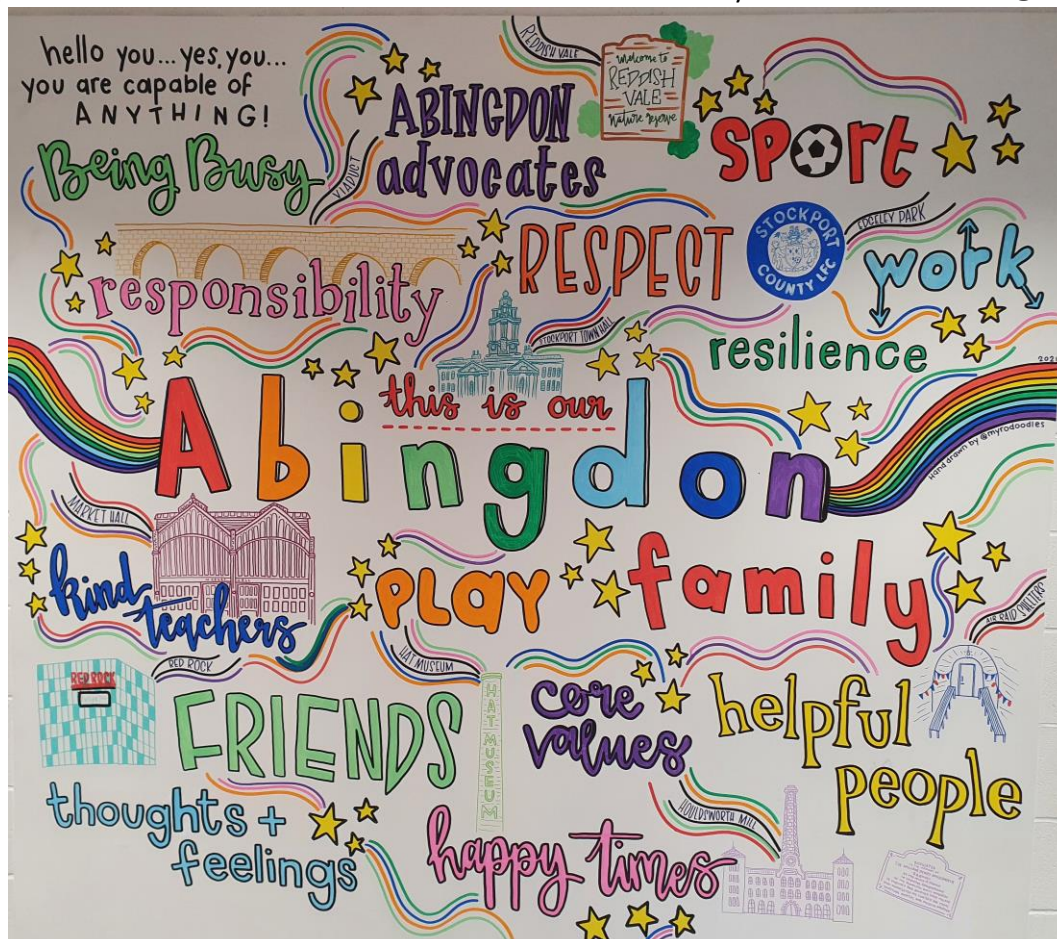 hello you...yes, you...
you are capable of
ANYTHING!
Being Busy
VIADUCT
ABINGDON
advocates
REDDISH VALE
welcome to
REDDISH
VALE
nature reserve
sport
responsibility
RESPECT
STOCKPORT
COUNTY LFC
EDGELEY PARK
work
STOCKPORT TOWN HALL
resilience
2021
this is our
Abingdon
hand drawn by @myrodoodles
MARKET HALL
kind
teachers
PLAY
family
AIR RAID SHELTERS
RED ROCK
RED ROCK
FRIENDS
HAT MUSEUM
HAT MUSEUM
core
values
helpful
people
thoughts +
feelings
happy times
HOULDSWORTH MILL